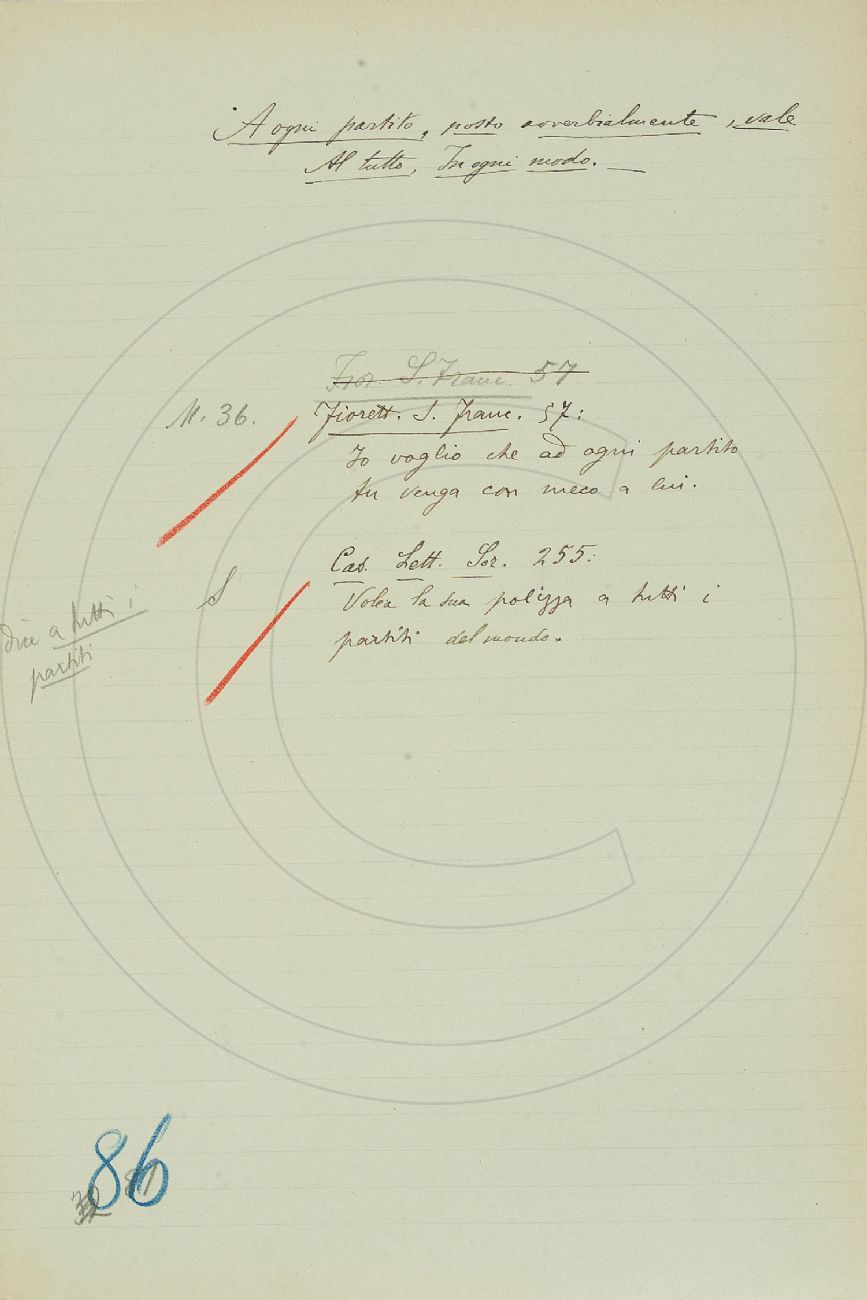 A ogni partito, posto avverbialmente, vale
Al tutto, In ogni modo. —
Fior. S. Franc. 57
M. 36.
Fiorett. S. Franc. 57:
Io voglio che ad ogni partito
tu venga con meco a lui.
S
Cas. Lett. Sor. 255:
Volea la sua polizza a tutti i
partiti del mondo.
dice a tutti i
partiti
86